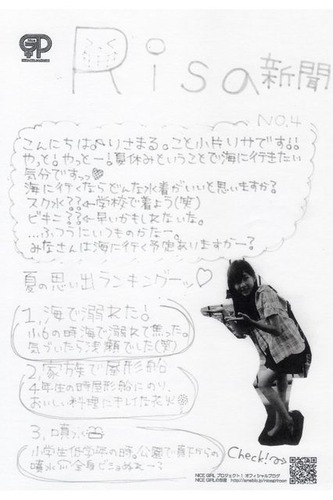 Risa新聞
NO.4
こんにちは りさまる。こと小片リサです!!
やっと!やっとー!夏休みということで海に行きたい
気分ですっっ
海に行くならどんな水着がいいと思いますか?
スク水??←学校で着よう(笑)
ビキニ??←早いかもしれないな。
…ふつうにいつものかなー。
みなさんは海に行く予定ありますかー?
夏の思い出ランキングーッ♡
1.海で溺れた!
小6の時海で溺れて焦った。
気づいたら浅瀬でした(笑)
2.家族で屋形船
4年生の時屋形船にのり、
おいしい料理にもけた花火
3.噴
小学生低学年の時。公園で真下からの
噴水
全身ビショぬれー!
Check!
NICE GIRL プロジェクト! オフィシャルブログ
NICE GIRLの部屋